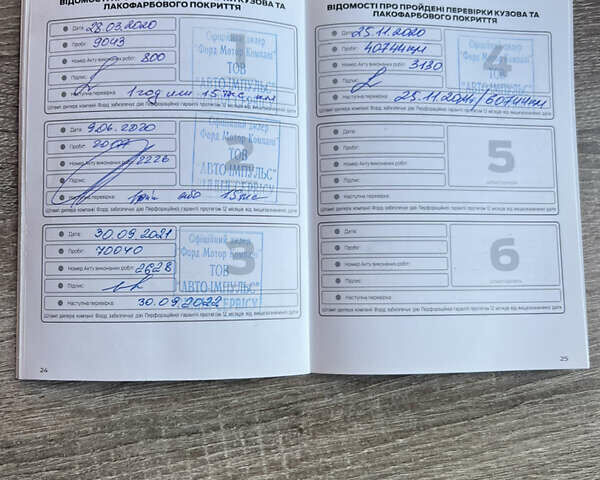 ВІДОМОСТІ
КУЗОВА ТА
ПАКОФАРБОВОГО ПОКРИТТЯ
Дата: 28.03.2020
Пробіг: 9043
Номер Акту виконаних робіт: 800
Підпис:
Наступна перевірка: 1 год или 15 тыс. км
Штамп дилера компанії Форд забезпечує дію Перфораційної гарантії протягом 12 місяців від вищезазначеної дати
Офіційний дилер
"Форд Мотор Компані"
ТОВ
"АВТО-ІМПУЛЬС"
Дата: 9.06.2020
Пробіг:
Номер Акту виконаних робіт: 2226
Підпис:
Наступна перевірка: або 15
Штамп дилера компанії Форд забезпечує дію Перфораційної гарантії протягом 12 місяців від вищезазначеної дати
2
Офіційний дилер
"Форд Мотор Компані"
ТОВ
"АВТО-ІМПУЛЬС"
Дата: 30.09.2021
Пробіг: 70040
Номер Акту виконаних робіт: 2628
Підпис:
Наступна перевірка: 30.09.2022
Штамп дилера компанії Форд забезпечує дію Перфораційної гарантії протягом 12 місяців від вищезазначеної дати
3
Офіційний дилер
"Форд Мотор Компані"
ТОВ
"АВТО-ІМПУЛЬС"
24
ВІДОМОСТІ ПРО ПРОЙДЕНІ ПЕРЕВІРКИ КУЗОВА ТА
ПАКОФАРБОВОГО ПОКРИТТЯ
Дата: 25.11.2020
Пробіг: 40744 км
Номер Акту виконаних робіт: 3180
Підпис:
Наступна перевірка: 25.11.2021/60744км
Штамп дилера компанії Форд забезпечує дію Перфораційної гарантії протягом 12 місяців від вищезазначеної дати
4
Офіційний дилер
"Форд Мотор Компані"
ТОВ
"АВТО-ІМПУЛЬС"
Дата:
Пробіг:
Номер Акту виконаних робіт:
Підпис:
Наступна перевірка:
Штамп дилера компанії Форд забезпечує дію Перфораційної гарантії протягом 12 місяців від вищезазначеної дати
5
Дата:
Пробіг:
Номер Акту виконаних робіт:
Підпис:
Наступна перевірка:
Штамп дилера компанії Форд забезпечує дію Перфораційної гарантії протягом 12 місяців від вищезазначеної дати
6
25